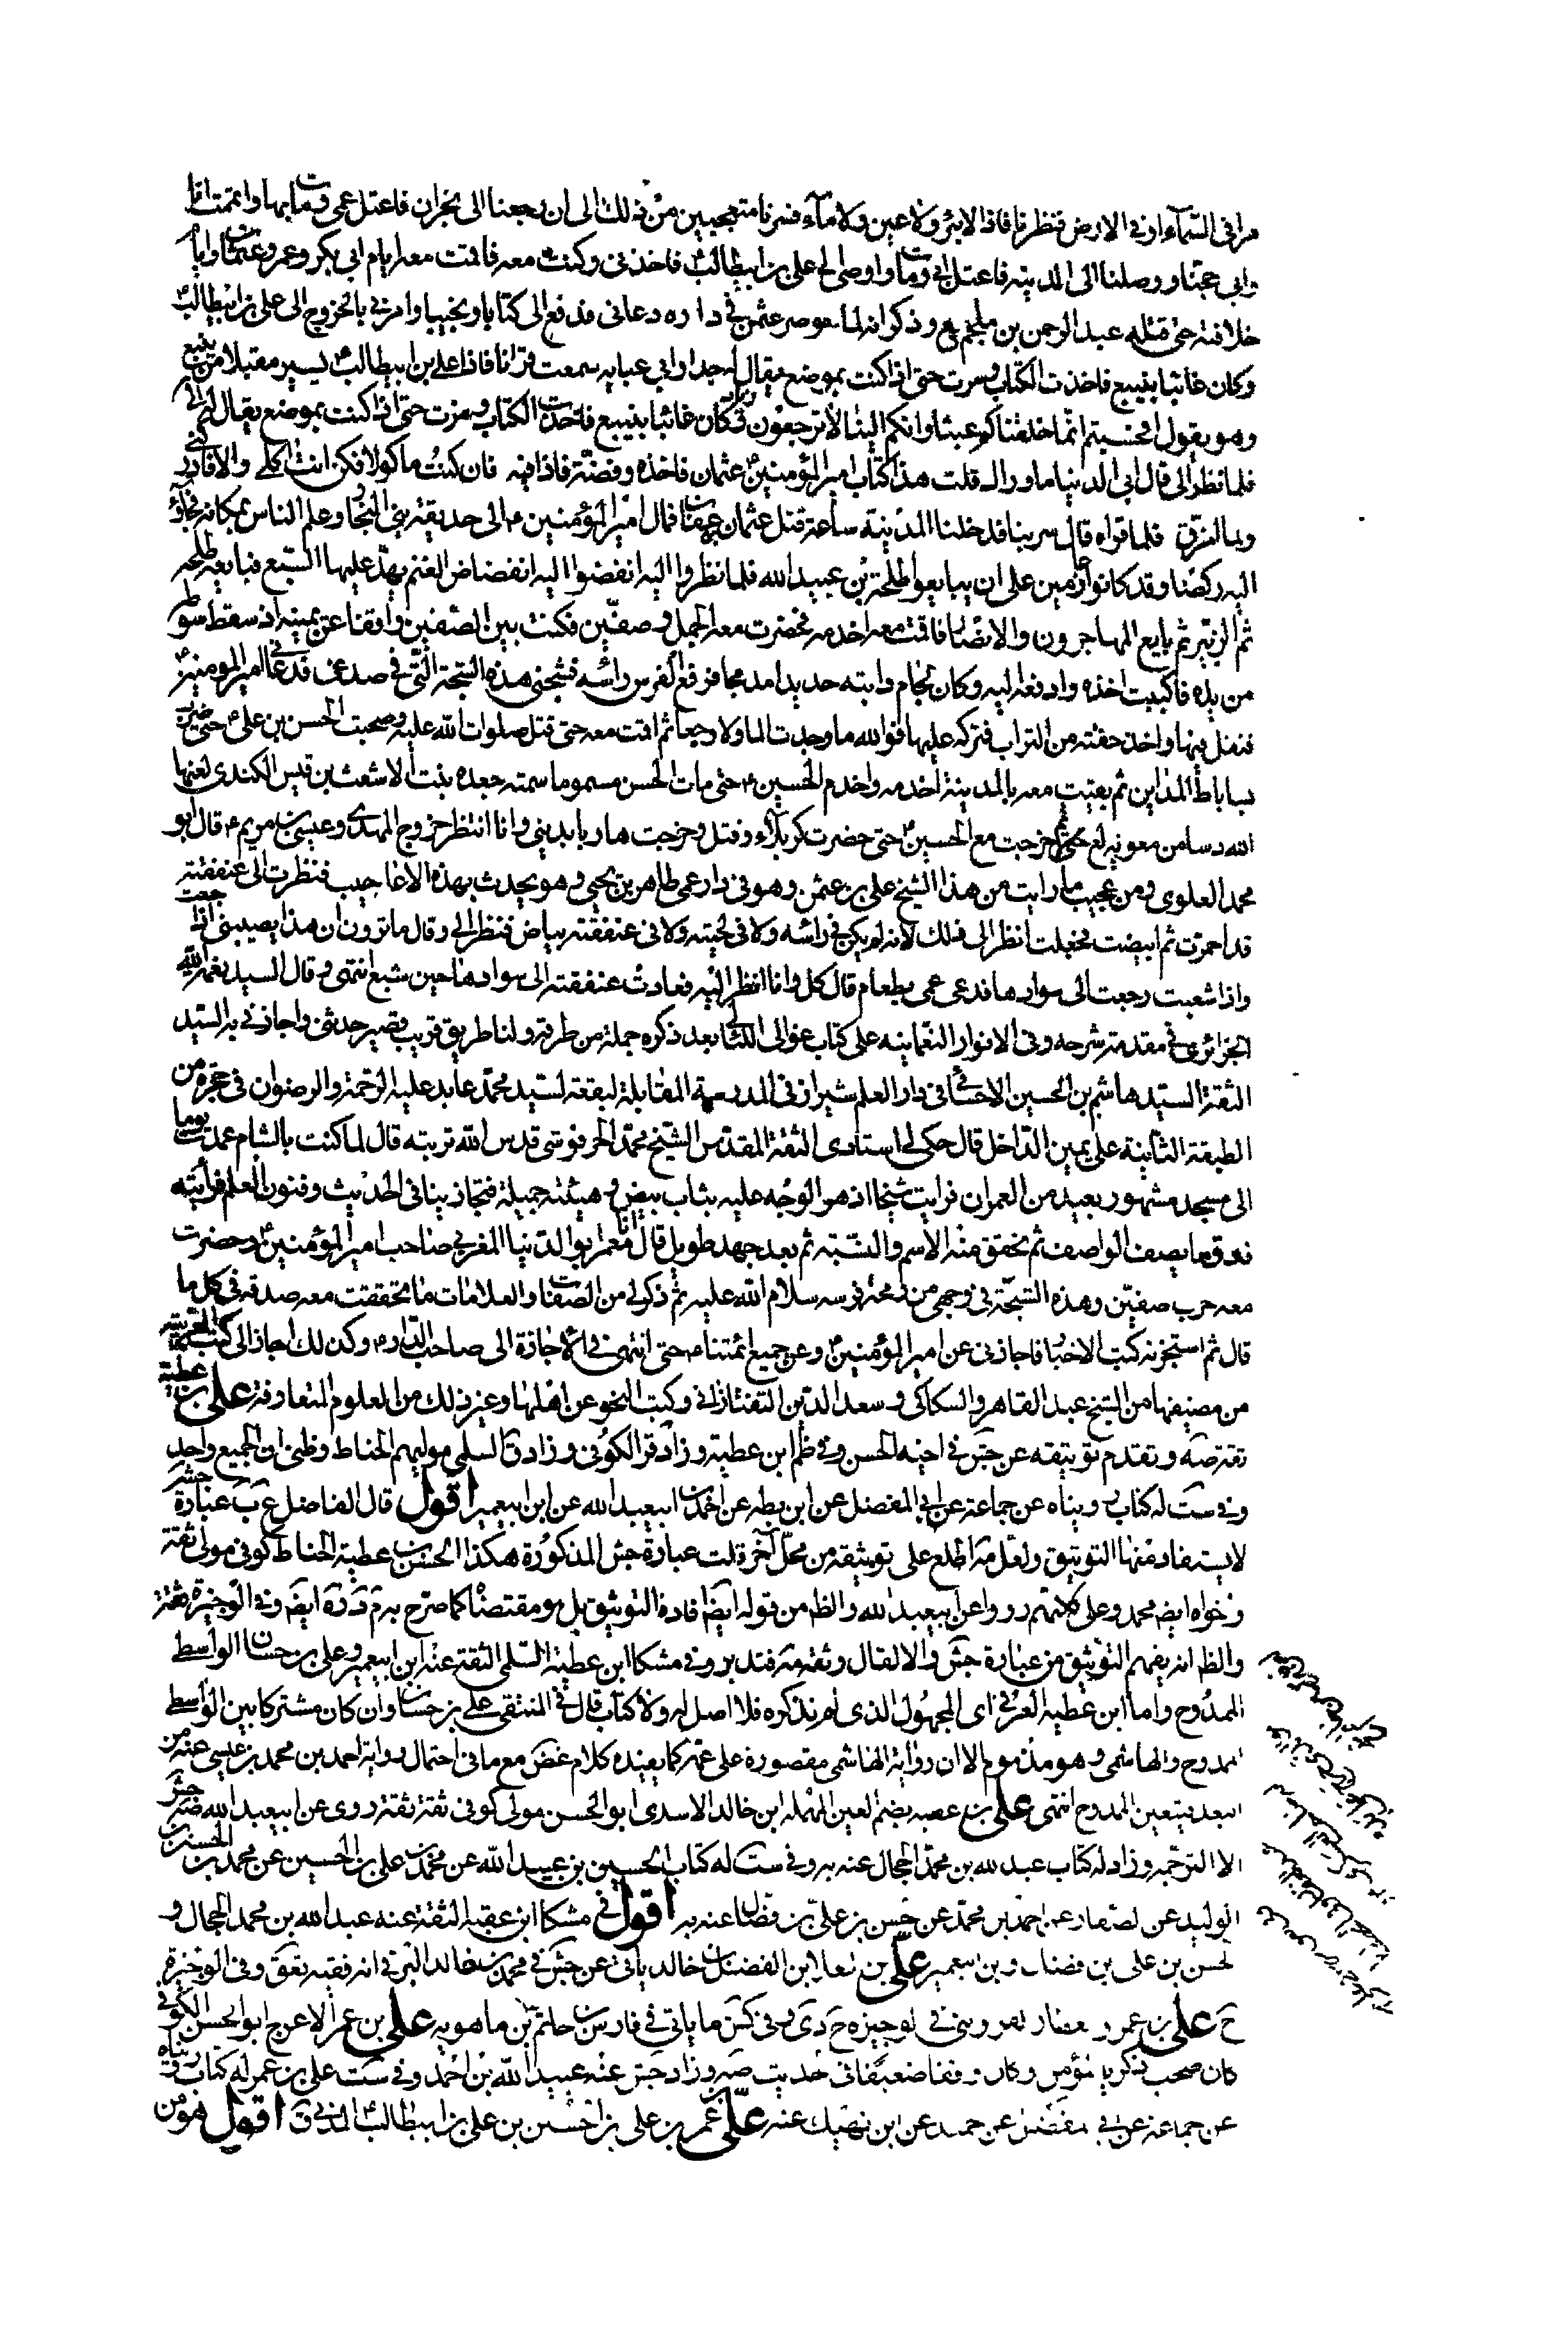 مرا في السمآء او في الارض فنظرنا فاذا لا بئر ولا عين ولا مآء فسرنا متعجبين من ذلك الى ان رجعنا الى نجران فاعتل عمى ومات بها واتممت انا
وابي حجنا ووصلنا الى المدينه فاعتل ابي ومات واوصى الى علي بن ابيطالب فاخذنى وكنت معه فاقمت معه ايام ابي بكر وعمر وعثمان وايام
خلافته حتى قتله عبد الرحمن بن ملجم لع وذكر انه لما حوصر عثمن في داره دعانى فدفع الى كتابا ونجيبا وامرنى بالخروج الى علي بن ابيطالب
وكان غائبا بينبع فاخذت الكتاب وسرت حتى اذا كنت بموضع يقال له جدار ابي عبايه سمعت قرانا فاذا علي بن ابيطالب يسير مقبلا من ينبع
وهو يقول افحسبتم انما خلقناكم عبثا وانكم الينا لا ترجعون وكان غائبا بينبع فاخذت الكتاب وسرت حتى اذا كنت بموضع يقال له
فلما نظر الى قال ابي الدنيا ما وراك قلت هذا كتاب امير المؤمنين عثمان فاخذه وفضه فاذا فيه فان كنت ماكولا فكن انت اكلي والا فادركني
ولما امزق فلما قراه قال سر بنا فدخلنا المدينة ساعة قتل عثمان بن عفان فمال امير المؤمنين الى حديقة بني النجار وعلم الناس بمكانه فجاؤا
اليه ركضا وقد كانوا عازمين على ان يبايعوا طلحة بن عبيد الله فلما نظروا اليه انفضوا اليه انفضاض الغنم يهد عليها السبع فبايعه طلحه
ثم الزبير ثم بايع المهاجرون والانصار فاقمت معه اخدمه فحضرت معه الجمل وصفين فكنت بين الصفين واقفا عن يمينه اذ سقط سوطه
من يده فاكببت اخذه وادفعه اليه وكان لجام دابته حديدا مدمجا فرفع الفرس راسه فشجنى هذه الشجة التى في صدغى فدعانى امير المومنين
فتفل فيها واخذ حفنة من التراب فتركه عليها فوالله ما وجدت الما ولا وجعا ثم اقمت معه حتى قتل صلوات الله عليه وصحبت الحسن بن على حتى ضرب
بساباط المداين ثم بقيت معه بالمدينة اخدمه واخدم الحسين حتى مات الحسن مسموما سمته جعده بنت الاشعث بن قيس الكندى لعنها
الله دسا من معويه لع ثم خرجت مع الحسين حتى حضرت كربلاء وقتل وخرجت هاربا بدينى وانا انتظر خروج المهدى وعيسى بن مريم قال ابو
محمد العلوى ومن عجيب ما رايت من هذا الشيخ علي بن عثمن وهو في دار عمى طاهر بن يحيى وهو يحدث بهذه الاعاجيب فنظرت الى عنفقته
قد احمرت ثم ابيضت فجعلت انظر الى ذلك لانه لم يكن في راسه ولا في لحيته ولا في عنفقته بياض فنظر الى وقال ما ترون ان هذا يصيبنى اذا جعت
واذا شبعت رجعت الى سوادها فدعى عمى بطعام قال كل وانا انظر اليه فعادت عنفقته الى سوادها حين شبع انتهى وقال السيد نعمة الله
الجزائرى في مقدمة شرحه وفي الانوار النعمانيه على كتاب غوالى اللئالى بعد ذكره جملة من طرقه ولنا طريق قريب وقصير حدثنى واجازنى به السيد
الثقة السيد هاشم بن الحسين الاحسائى في دار العلم شيراز في المدرسة المقابلة لبقعة السيد محمد عابد عليه الرحمة والرضوان في حجرة من
الطبقة الثانية على يمين الداخل قال حكى لى استادى الثقة المقدس الشيخ محمد الحرفوشى قدس الله تربته قال لما كنت بالشام عمدت يوما
الى مسجد مشهور بعيد من العمران فرايت شيخا ازهر الوجه عليه ثياب بيض وهيئة جميلة فتجاذبنا في الحديث وفنون العلم فرايته
فوق ما يصف الواصف ثم تحقق منه الاسم والنسبة ثم بعد جهد طويل قال انا معمر ابو الدنيا المغربى صاحب امير المؤمنين وحضرت
معه حرب صفين وهذه الشجة في وجهى من رمحة فرسه سلام الله عليه ثم ذكر لى من الصفات والعلامات ما تحققت معه صدقه في كل ما
قال ثم استجزته كتب الاخبار فاجازنى عن امير المؤمنين وعن جميع ائمتنا حتى انتهى في الاجازة الى صاحب الدار وكذلك اجاز لى كتب العربية
من مصنفها من الشيخ عبد القاهر والسكاكى وسعد الدين التفتازانى وكتب النحو عن اهلها وغير ذلك من العلوم المتعارفة علي بن عطية
تقرضه وتقدم توثيقه عن جش في اخيه الحسن وفي ظم ابن عطية وزاد قر الكوفى وزاد ق السلمى موليهم الحناط وظنى ان الجميع واحد
وفي ست له كتاب رويناه عن جماعة عن ابي المفضل عن ابن بطه عن احمد بن ابيعبد الله عن ابن ابيعمير اقول قال الفاضل ع ب عبارة جش
لا يستفاد منها التوثيق ولعل مة اطلع على توثيقه من محل آخر قلت عبارة جش المذكورة هكذا الحسن بن عطية الحناط كوفى مولى ثقة
واخواه ايضا محمد وعلي كلهم رووا عن ابيعبد الله والظم من قوله ايضا افادة التوثيق بل هو مقتضاه كما صرح به ايضا وفي الوجيزة ثقة
والظم انه يفهم التوثيق من عبارة جش والا لقال وثقه مة فتدبر وفي مشكا ابن عطية السلمى الثقة عنه ابن ابيعمير وعلي بن حسان الواسطى
الممدوح واما ابن عطية العرفى اى المجهول الذى لم نذكره فلا اصل له ولا كتاب قال في المنتقى علي بن حسان وان كان مشتركا بين الواسطى
الممدوح والهاشمى وهو مذموم الا ان رواية الهاشمى مقصورة على عمه كما يفيده كلام غض مع ما في احتمال رواية احمد بن محمد بن عيسى عنه من
البعد فيتعين الممدوح انتهى علي بن عقبه بضم العين المهمله ابن خالد الاسدى ابو الحسن مولى كوفى ثقة ثقة روى عن ابيعبد الله صه جش
الا الترجمه وزاد له كتاب عبد الله بن محمد الحجال عنه به وفي ست له كتاب الحسين بن عبيد الله عن محمد بن علي بن الحسين عن محمد بن الحسن بن
الوليد عن الصفار عن احمد بن محمد عن حسن بن علي بن فضال عنه به اقول في مشكا ابن عقبه الثقة عنه عبد الله بن محمد الحجال و
الحسن بن على بن فضال وبن ابيعمير علي بن العلا ابن الفضل بن خالد ياتى عن جش في محمد بن خالد البرقى انه فقيه تعق وفي الوجيزة
ح علي بن عمرو العطار القزوينى في الوجيزه ح دى وفي كش ما ياتى في فارس بن حاتم بن ماهويه علي بن عمر الاعرج ابو الحسن الكوفى
كان صحب زكريا المؤمن وكان واقفا ضعيفا في الحديث صه وزاد جش عنه عبيد الله بن احمد وفي ست علي بن عمر له كتاب رويناه
عن جماعة عن ابي المفضل عن حميد عن ابن نهيك عنه علي بن عمر بن على بن الحسين بن علي بن ابيطالب المدنى ق اقول هو من